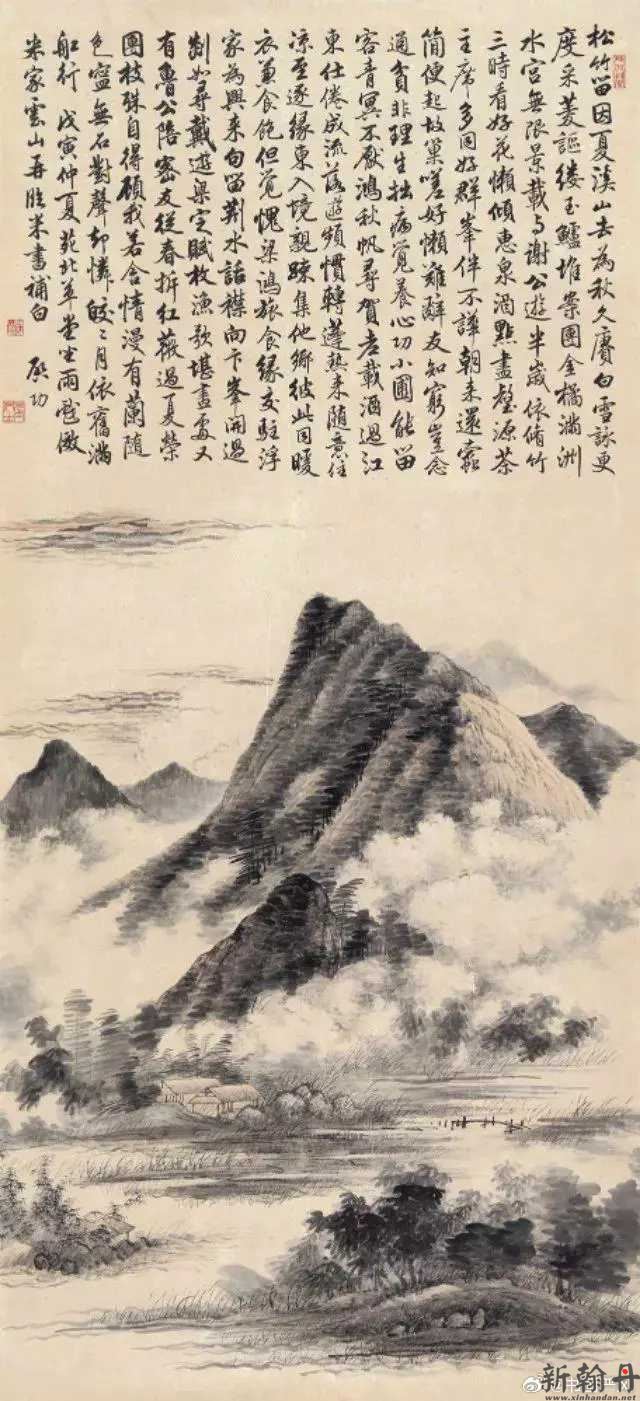 松竹留因夏溪山去為秋久賡白雪詠更
度采菱謳縷玉鱸堆案團金橘滿洲
水宮無限景載与謝公遊半歲依脩竹
三時看好花懶傾惠泉酒點盡壑源茶
主席多同好群峯伴不譁朝來還蠹
簡便起故巢嗟好懶難辭友知窮豈念
通貧非理生拙病覺養心功小圃能留
客青冥不厭鴻秋帆尋賀老載酒過江
東仕倦成流落遊頻慣轉蓬熱来隨意住
涼至逐緣東入境親疎集他鄉彼此同暖
衣兼食飽但覺愧梁鴻旅食緣交駐浮
家為興来句留荊水話襟向卞峯開過
剡如尋戴遊梁定賦枚漁歌堪畫處又
有魯公陪密友從春拆紅薇過夏榮
團枝殊自得顧我若含情漫有蘭隨
色寧無石對聲却憐皎〻月依舊滿
舡行 戊寅仲夏苑北草堂坐雨戲倣
米家雲山再臨米書補白 啟功
新翰丹
www.xinhandan.net